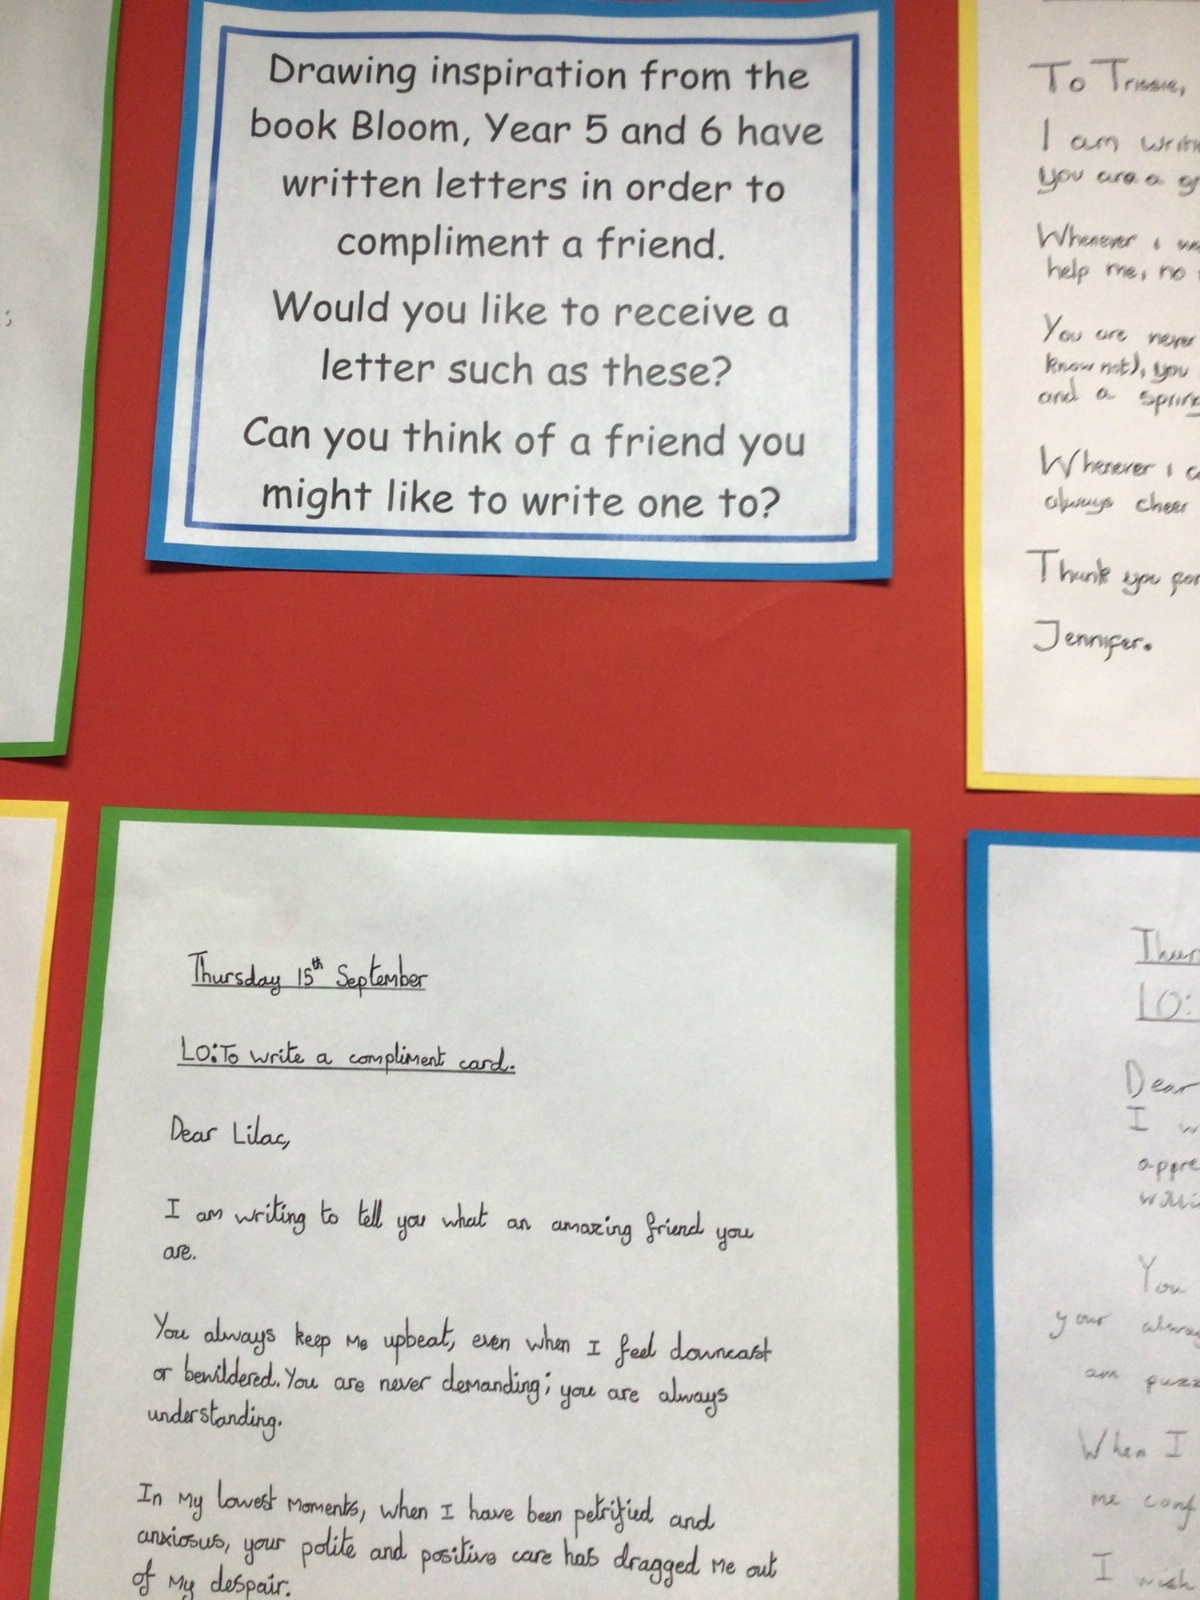 Drawing inspiration from the
book Bloom, Year 5 and 6 have
written letters in order to
compliment a friend.
Would you like to receive a
letter such as these?
Can you think of a friend you
might like to write one to?
To Trissie,
I am
you are a
Whenever i
help me, no
You are never
know not), you
and a
Whenever i
always cheer
Thank you for
Jennifer.
Thursday 15th September
LO: To write a compliment card.
Dear Lilac,
I am writing to tell you what an amazing friend you
are.
You always keep me upbeat, even when I feel downcast
or bewildered. You are never demanding; you are always
understanding.
In my lowest moments, when I have been petrified and
anxiosus, your polite and positive care has dragged me out
of my despair.
LO:
Dear
I
You
your
am
When I
me
I wish